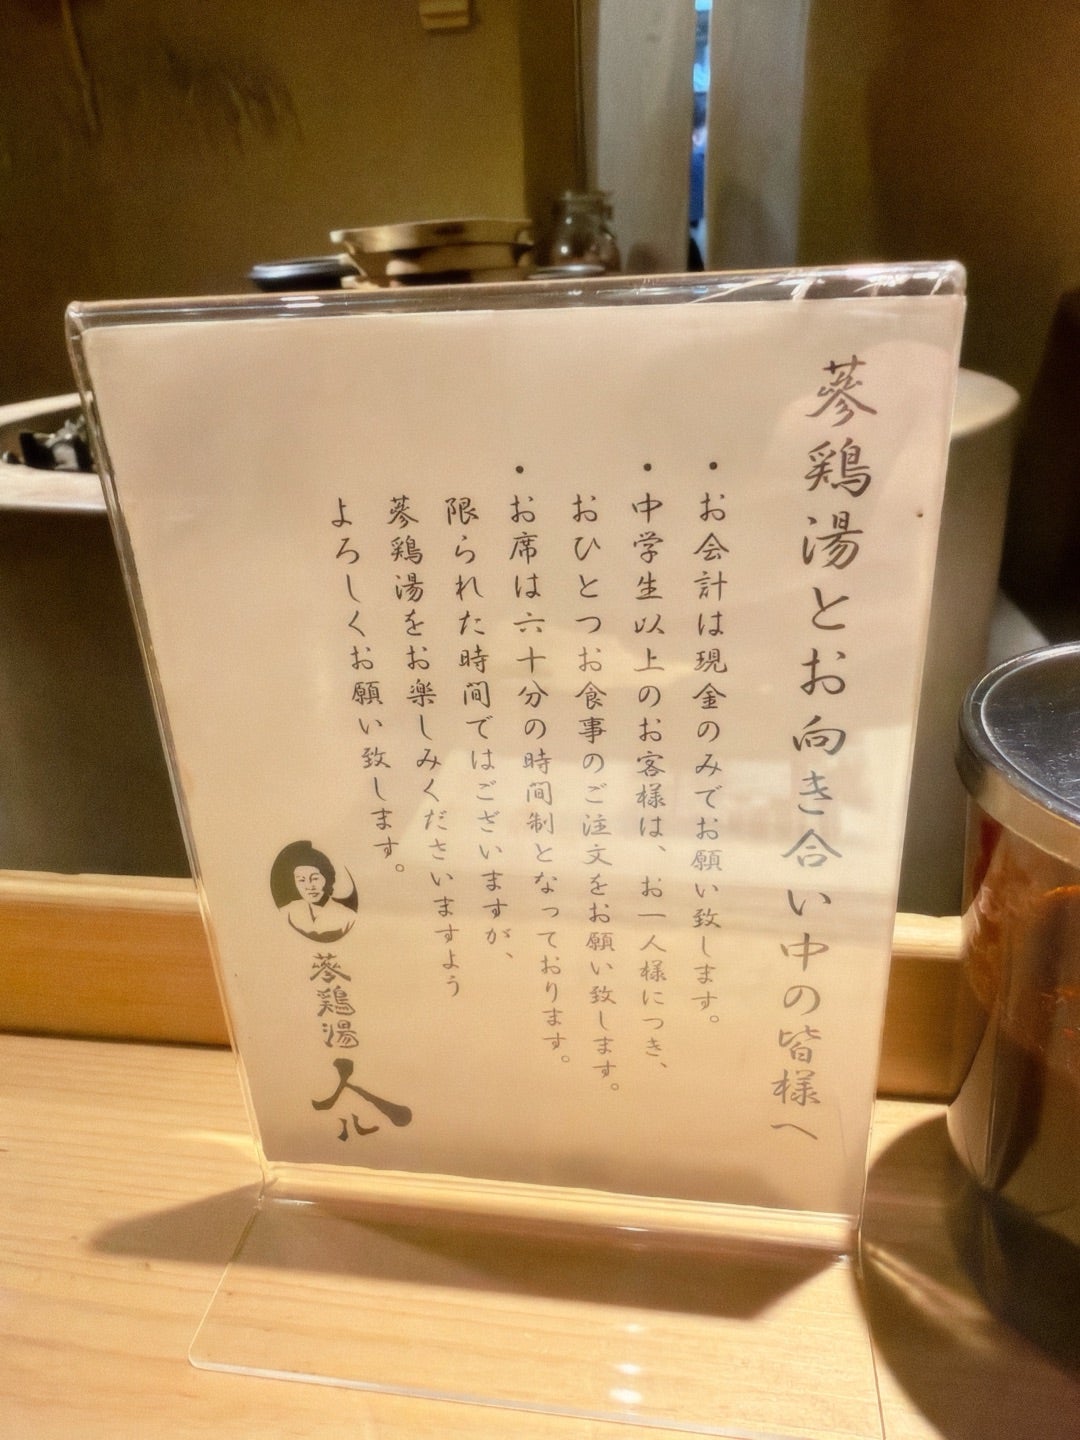 蔘鶏湯とお向き合い中の皆様へ
・お会計は現金のみでお願い致します。
・中学生以上のお客様は、お一人様につき、
おひとつお食事のご注文をお願い致します。
・お席は六十分の時間制となっております。
限られた時間ではございますが、
蔘鶏湯をお楽しみくださいますよう
よろしくお願い致します。
蔘鶏湯
人ル